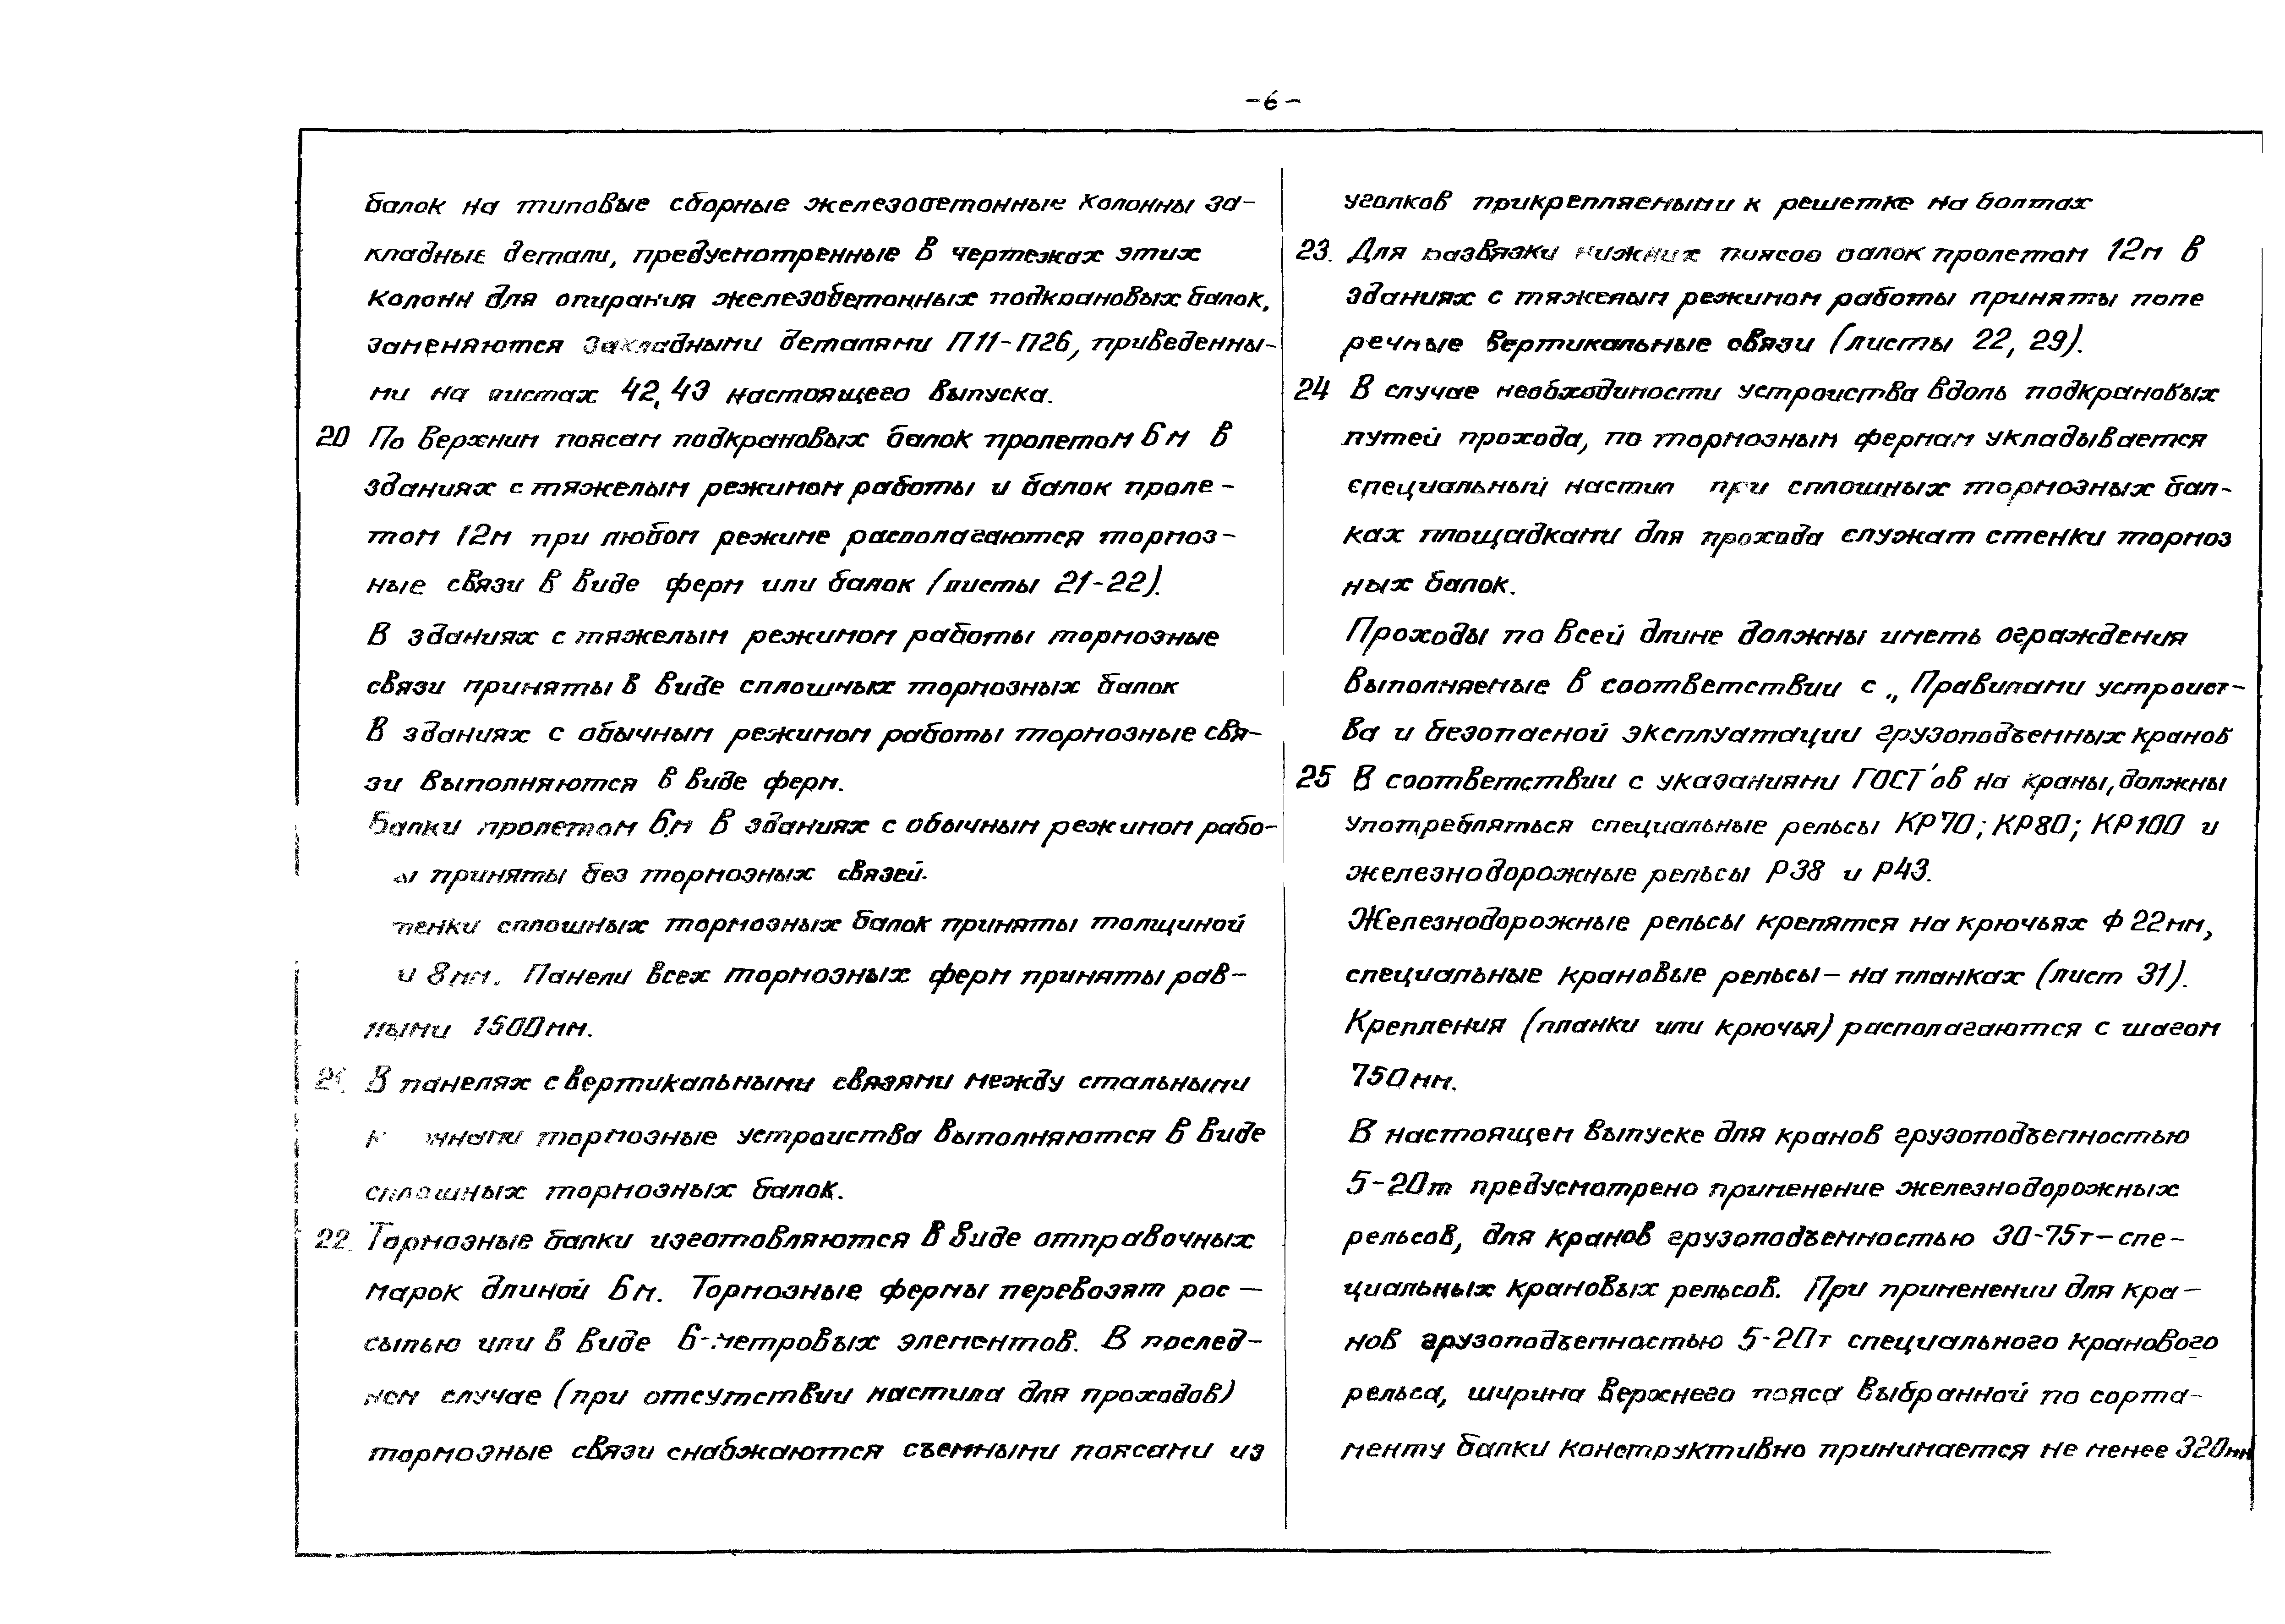 -6-
балок на типовые сборные железобетонные колонны за-
кладные детали, предусмотренные в чертежах этих
колонн для опирания железобетонных подкрановых балок,
заменяются закладными деталями П11-П26, приведенны-
ми на листах 42, 43 настоящего выпуска.
20 По верхним поясам подкрановых балок пролетом 6м в
зданиях с тяжелым режимом работы и балок проле-
том 12м при любом режиме располагаются тормоз-
ные связи в виде ферм или балок (листы 21-22).
В зданиях с тяжелым режимом работы тормозные
связи приняты в виде сплошных тормозных балок
В зданиях с обычным режимом работы тормозные свя-
зи выполняются в виде ферм.
Балки пролетом 6м в зданиях с обычным режимом рабо-
ы приняты без тормозных связей.
тенки сплошных тормозных балок приняты толщиной
и 8мм. Панели всех тормозных ферм приняты рав-
ными 1500мм.
В панелях с вертикальными связями между стальными
тормозные устроиства выполняются в виде
сплошных тормозных балок.
22. Тормозные балки изготовляются в виде отправочных
марок длиной 6м. Тормозные фермы перевозят рос-
сыпью или в виде 6-метровых элементов. В послед-
нем случае (при отсутствии настила для проходов)
тормозные связи снабжаются съемными поясами из
уголков прикрепляемыми к решетке на болтах
23. Для развязки нижних поясов балок пролетом 12м в
зданиях с тяжелым режимом работы приняты попе
речные вертикальные связи (листы 22, 29).
24 В случае необходимости устроиства вдоль подкрановых
путей прохода, по тормозным фермам укладывается
специальный настил при сплошных тормозных бал-
ках площадками для прохода служат стенки тормоз
ных балок.
Проходы по всей длине должны иметь ограждения
выполняемые в соответствии с „Правилами устроист-
ва и безопасной эксплуатации грузоподъемных кранов
25 В соответствии с указаниями ГОСТ'ов на краны, должны
употребляться специальные рельсы КР70; КР80; КР100 и
железнодорожные рельсы Р38 и Р43.
Железнодорожные рельсы крепятся на крючьях Ф 22мм,
специальные крановые рельсы - на планках (лист 31).
Крепления (планки или крючья) располагаются с шагом
750мм.
В настоящем выпуске для кранов грузоподъемностью
5-20т предусмотрено применение железнодорожных
рельсов, для кранов грузоподъемностью 30-75т - спе-
циальных крановых рельсов. При применении для кра-
нов грузоподъемностью 5-20т специального кранового
рельса, ширина верхнего пояса выбранной по сорта-
менту балки конструктивно принимается не менее 320мм